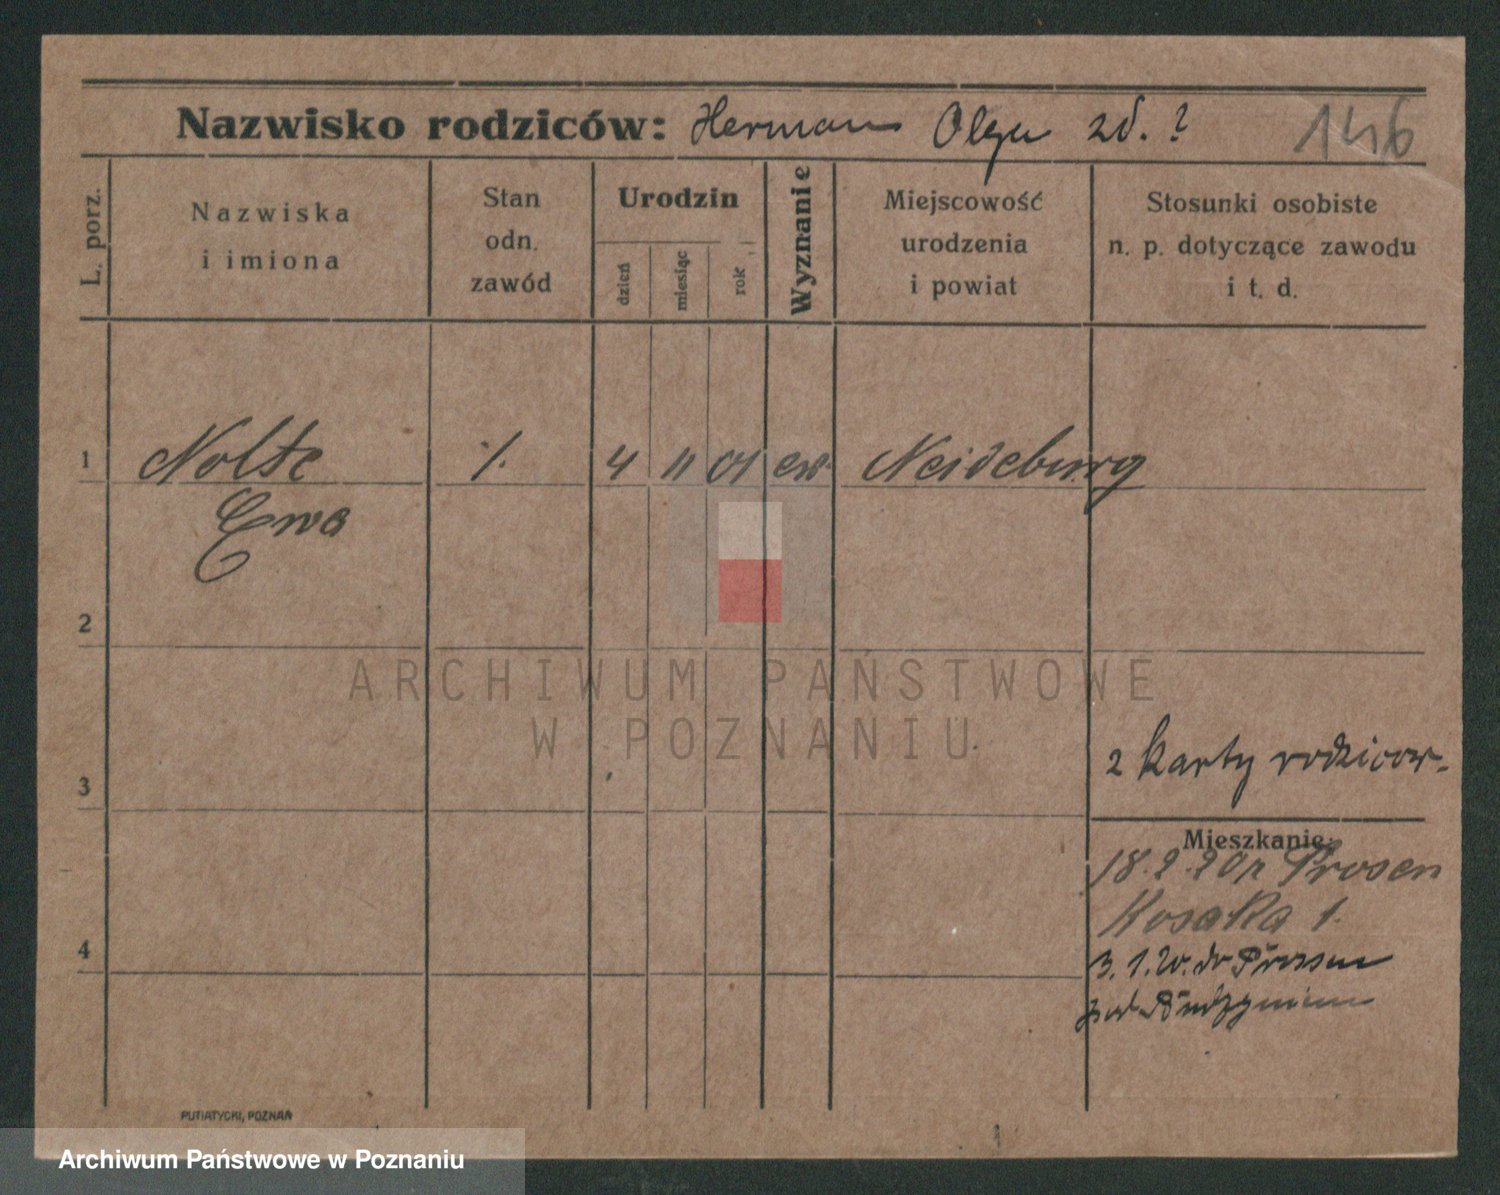 Nazwisko rodziców: Herman Olga zd. ? 146
L. porz.
Nazwiska
i imiona
Stan
odn.
zawód
Urodzin
dzień
miesiąc
rok
Wyznanie
Miejscowość
urodzenia
i powiat
Stosunki osobiste
n. p. dotyczące zawodu
i t. d.
1 Nolte /. 4 11 01 ew. Neideburg
Ewa
2
ARCHIWUM PAŃSTWOWE
W POZNANIU
2 karty rodzicow.
3
Mieszkanie:
18.2.20 r Prosen
Kosaka 1.
4
3.1.20. do
PUTIATYCKI, POZNAŃ
Archiwum Państwowe w Poznaniu